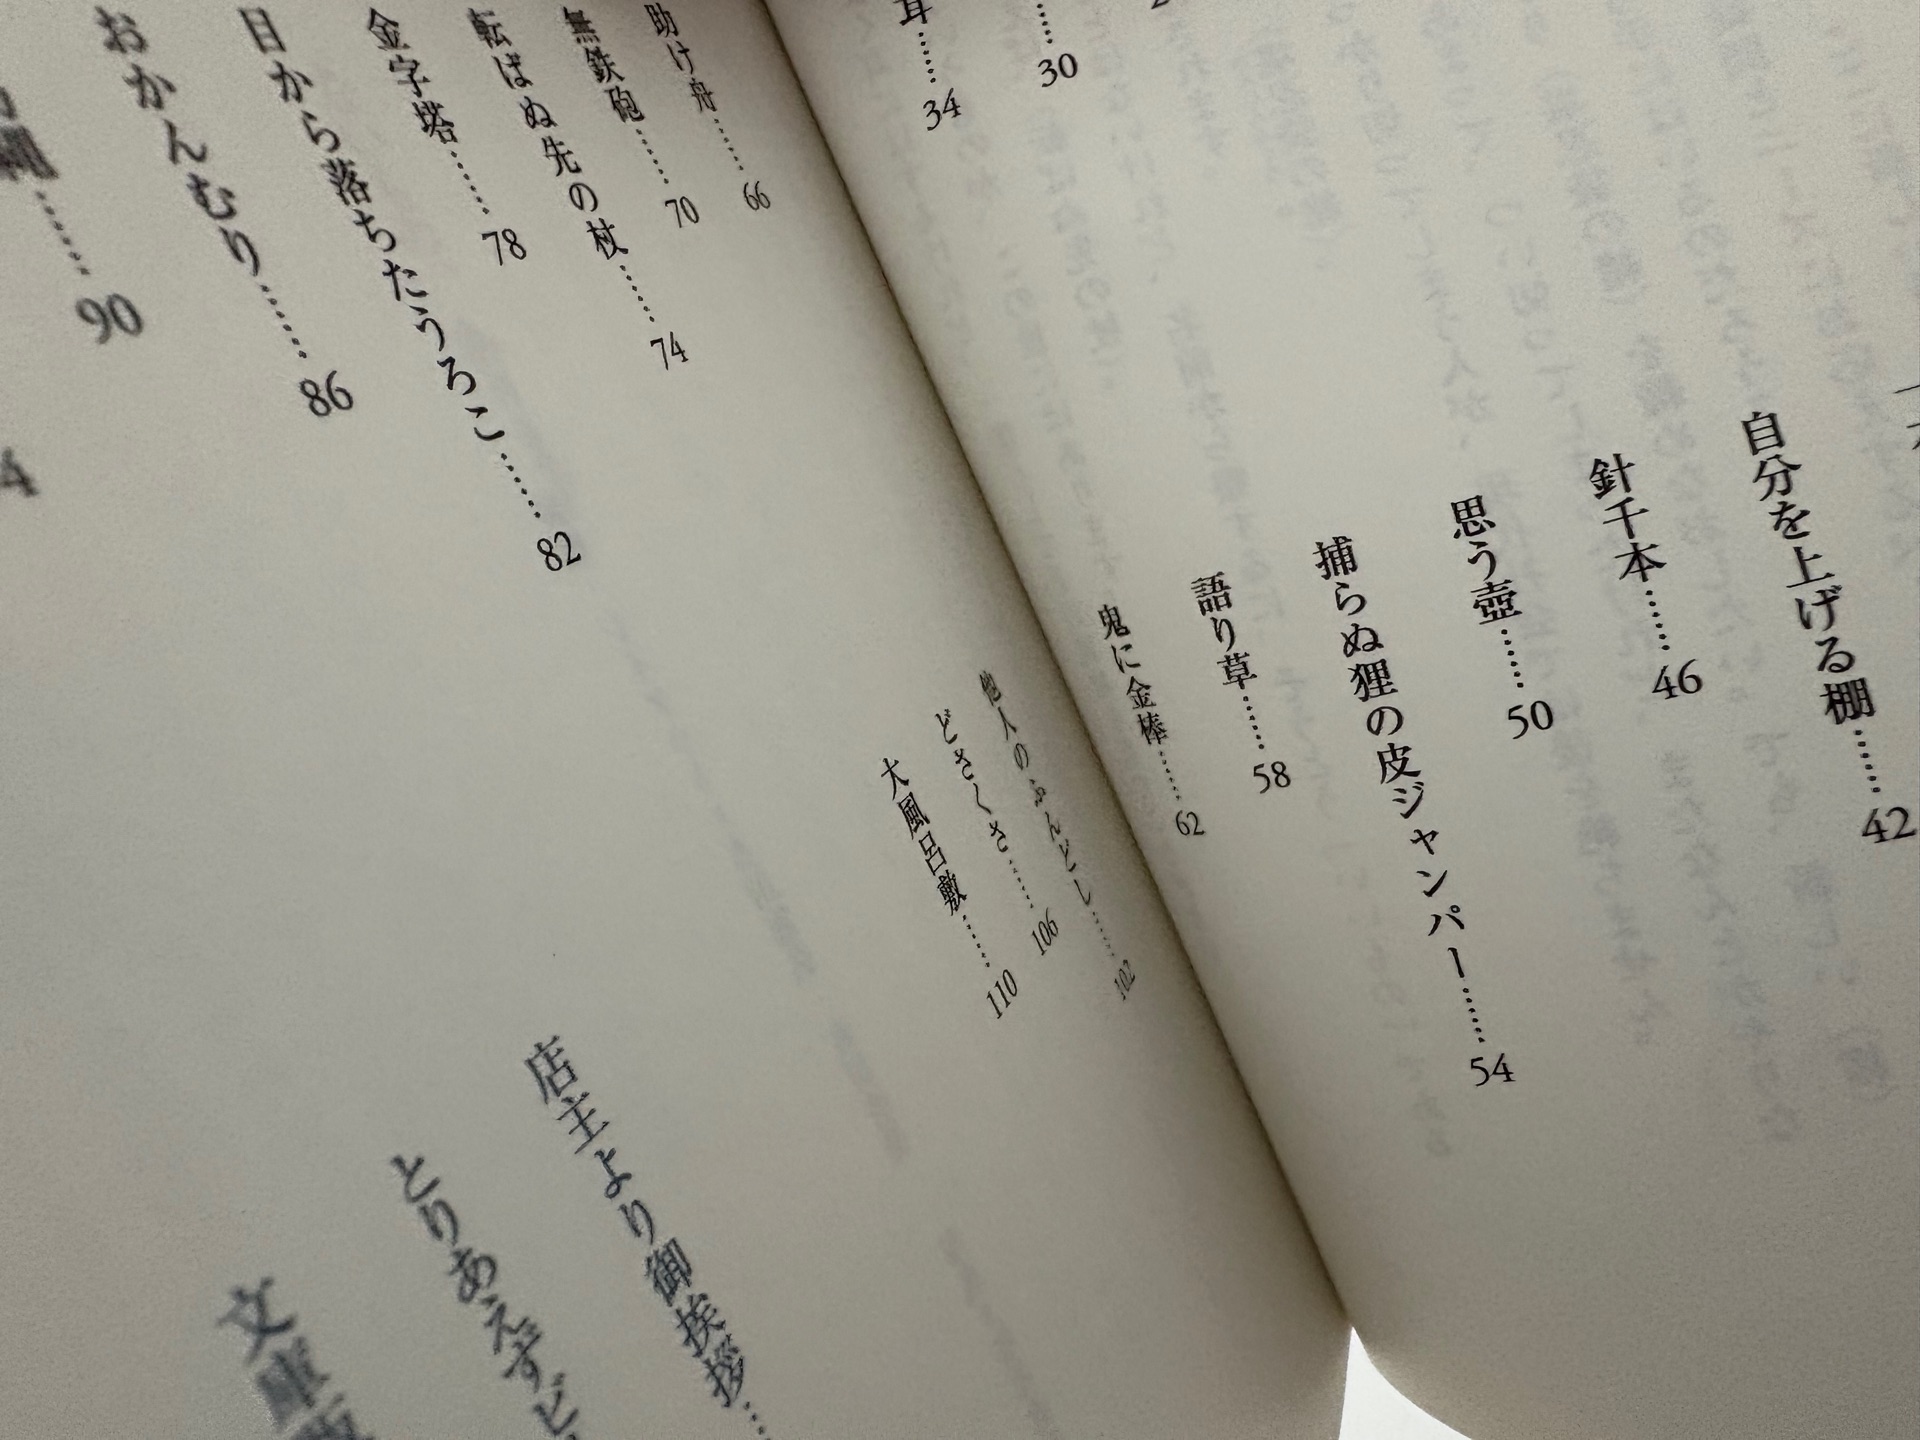 耳……34
……30
自分を上げる棚……42
針千本……46
思う壺……50
捕らぬ狸の皮ジャンパー……54
語り草……58
鬼に金棒……62
助け舟……66
無鉄砲……70
転ばぬ先の杖……74
金字塔……78
目から落ちたうろこ……82
おかんむり……86
縄……90
4
他人のふんどし……102
どさくさ……106
大風呂敷……110
店主より御挨拶…
とりあえずビ
文庫版